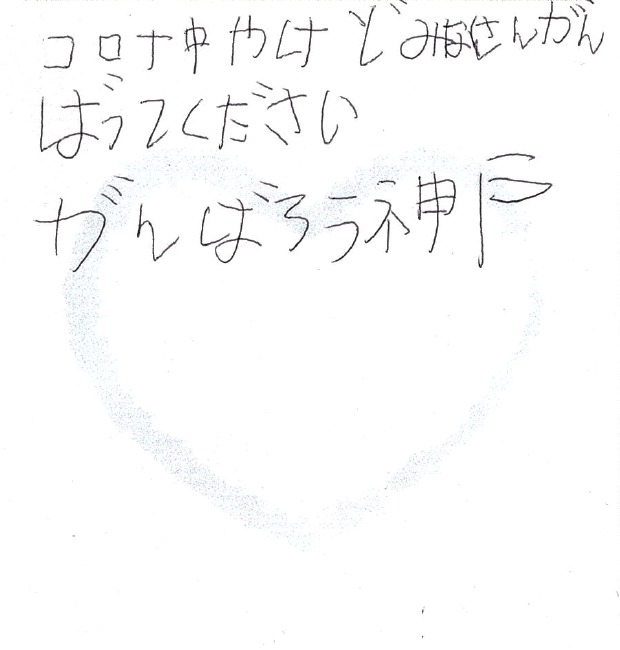 コロナ中やけどみなさんがん
ばってください
がんばろう神戸